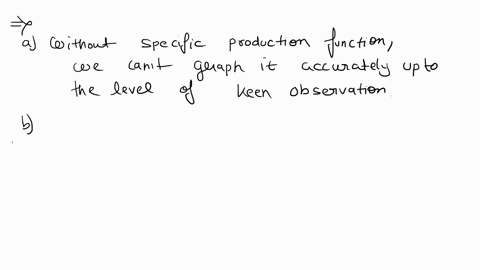 ⇒
a) Without specific production function,
we can't geraph it accurately upto
the level of keen observation
b)